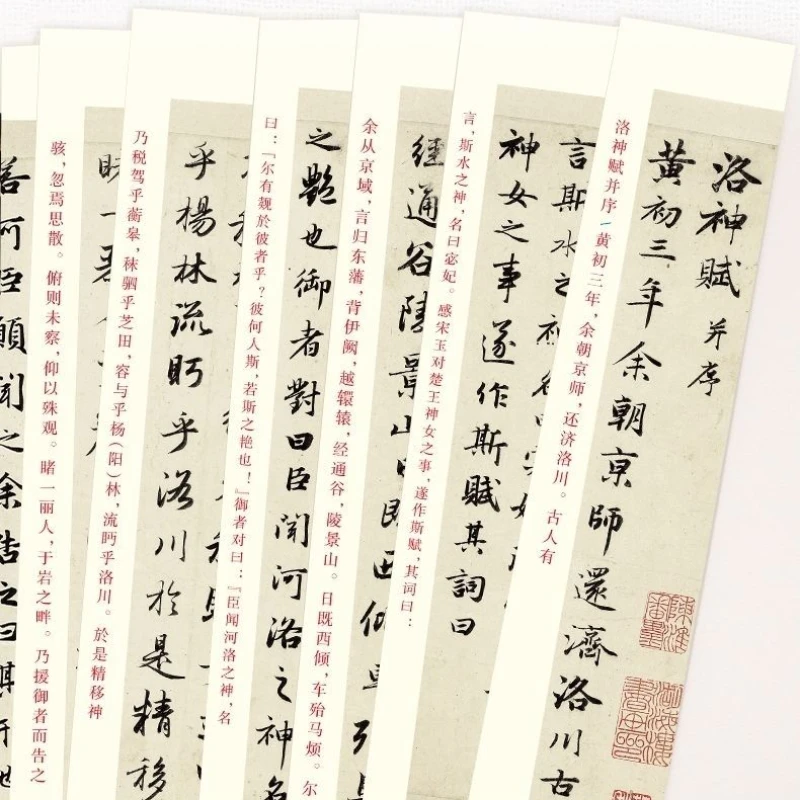 洛神賦并序
黃初三年余朝京師還濟洛川古
洛神赋并序 黄初三年，余朝京师，还济洛川。古人有
言斯水之神名曰宓妃
神女之事遂作斯賦其詞曰
言，斯水之神，名曰宓妃。感宋玉对楚王神女之事，遂作斯赋，其词曰：
經通谷陵景山日既西傾車殆馬
余从京域，言归东藩，背伊阙，越轘辕，经通谷，陵景山。日既西倾，车殆马烦。尔
之艷也御者對曰臣聞河洛之神名
曰：『尔有觌於彼者乎？彼何人斯，若斯之艳也！』御者对曰：『臣闻河洛之神，名
乎楊林流眄乎洛川於是精移
乃税驾乎蘅皋，秣驷乎芝田，容与乎杨（阳）林，流眄乎洛川。於是精移神
骇，忽焉思散。俯则未察，仰以殊观。睹一丽人，于岩之畔。乃援御者而告之
若何臣願聞之余告之曰其形也